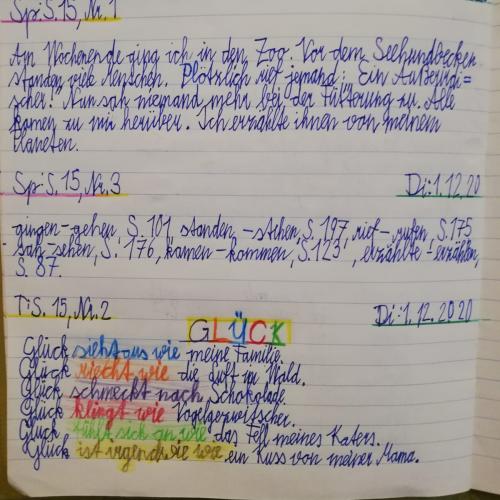 Sp: S. 15, Nr. 1
Am Wochenende ging ich in den Zoo. Vor dem Seehundbecken
standen viele Menschen. Plötzlich rief jemand: „Ein Außerirdi=
scher!" Nun sah niemand mehr bei der Fütterung zu. Alle
kamen zu mir herüber. Ich erzählte ihnen von meinem
Planeten.
Sp: S. 15, Nr. 3 Di: 1.12.20
gingen-gehen, S. 101, standen,-stehen, S. 197, rief-rufen, S. 175
sah-sehen, S. 176, kamen-kommen, S. 123, erzählte-erzählen,
S. 87.
T: S. 15, Nr. 2 Di: 1. 12. 2020
GLÜCK
Glück sieht aus wie meine Familie.
Glück riecht wie die Luft im Wald.
Glück schmeckt nach Schokolade.
Glück klingt wie Vogelgezwitscher.
Glück fühlt sich an wie das Fell meines Katers.
Glück ist irgendwie wie ein Kuss von meiner Mama.